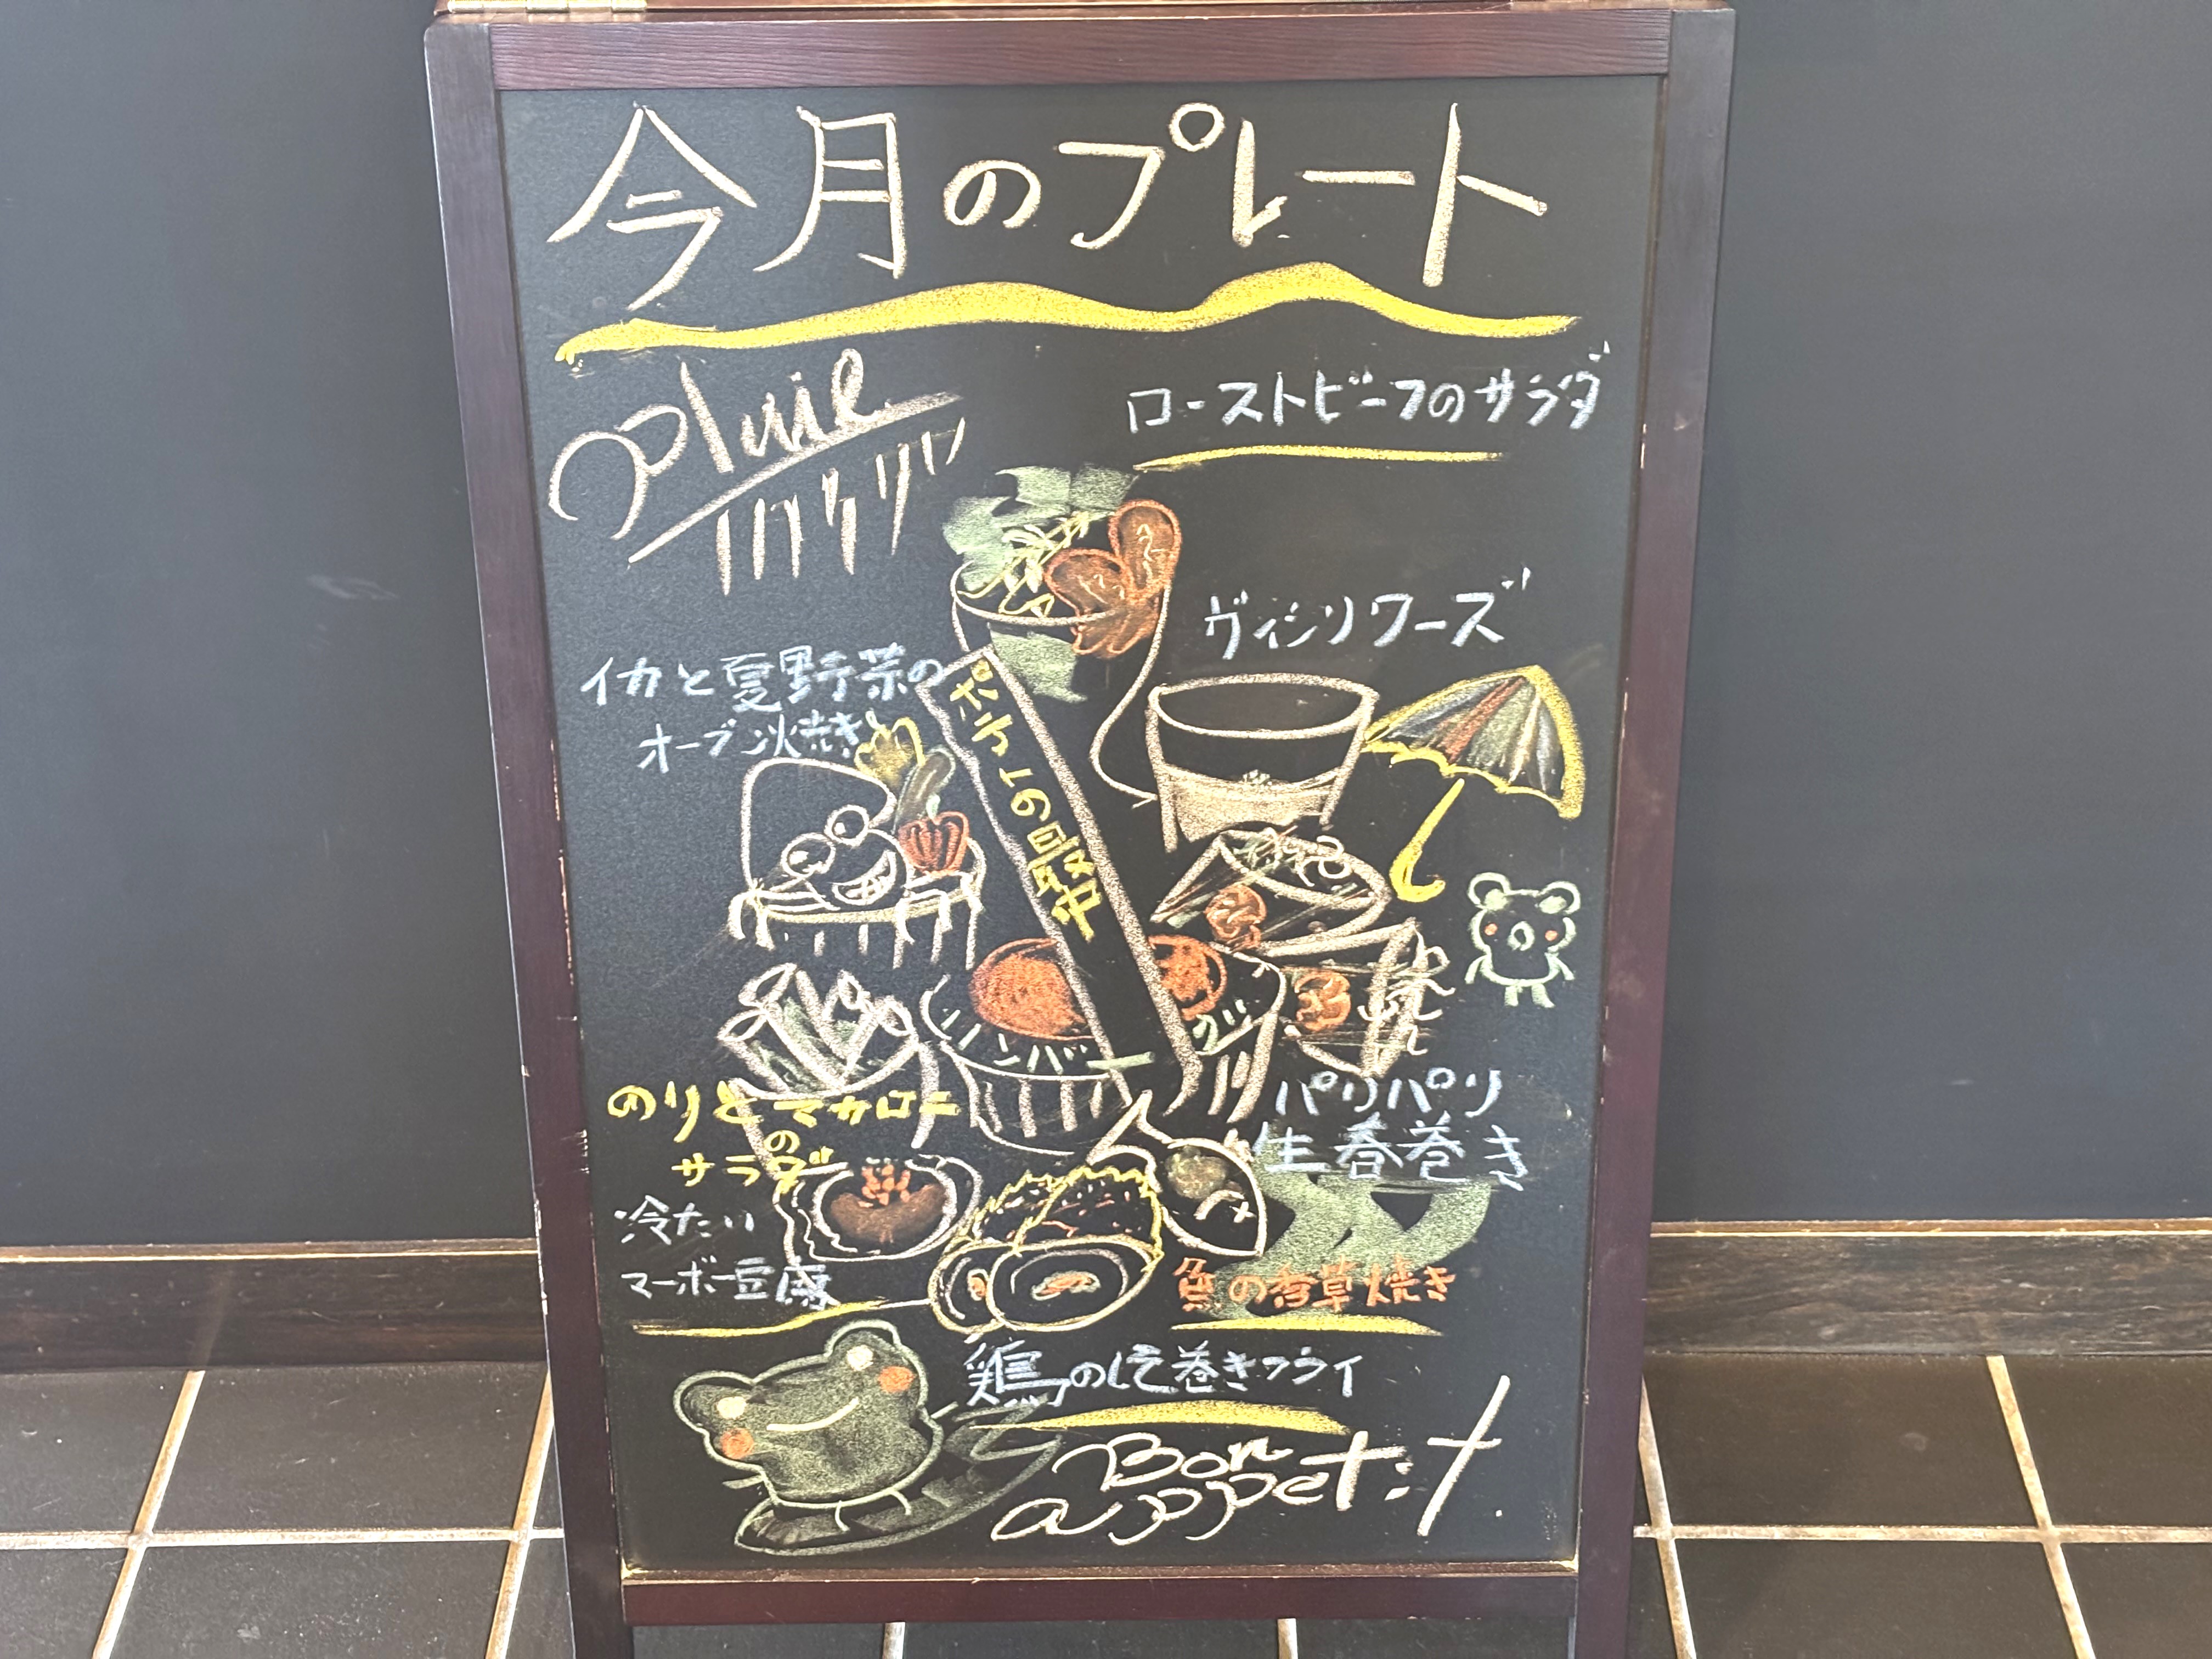 今月のプレート
Pluie
ローストビーフのサラダ
ヴィシソワーズ
イカと夏野菜の
オーブン焼き
ハンバーグ
のりとマカロニ
の
サラダ
パリパリ
生春巻き
冷たい
マーボー豆腐
魚の香草焼き
鶏のしそ巻きフライ
Bon
appetit.